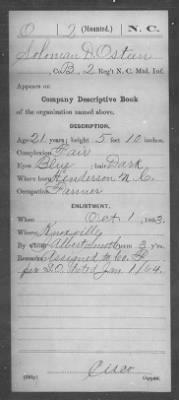 O 2 (Mounted.) N. C.
Soloman D. Osteen
Co. B, 2 Reg't N. C. Mtd. Inf.
Appears on
Company Descriptive Book
of the organization named above.
DESCRIPTION.
Age 21 years; height 5 feet 10 inches.
Complexion Fair
Eyes Blue; hair Dark
Where born Henderson N. C.
Occupation Farmer
ENLISTMENT.
When Oct 1, 1863.
Where Knoxville
By whom Albert term 3 y'rs.
Remarks Assigned to Co. F
per S.O. dated Jan 1/64.
Copyist.